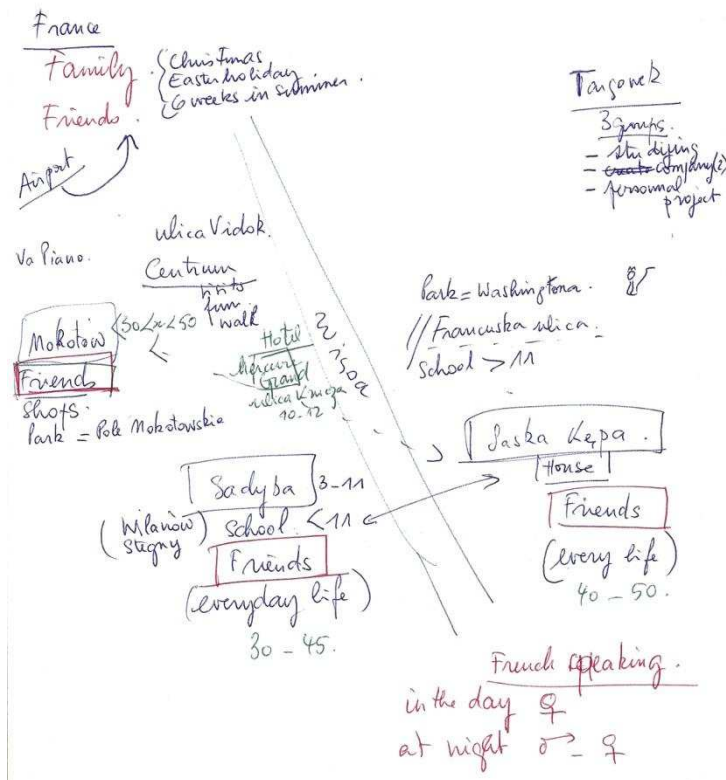 France
Family
Friends.
Christmas
Easter holiday
6 weeks in summer.
Airport
Targowek
3 groups.
- studijing
- company(2)
- personnal
project
ulica Vidok.
Va Piano.
Centrum
fun
walk
Mokotów
30<x<50
Friends
Shops.
Park = Pole Mokotowskie
Hotel
Mercure
Grand
ulica Krucza
10-12
Park = Washingtona.
// Francuska ulica.
School > 11
Saska Kępa.
House
Friends
(every life)
40 - 50.
Sadyba 3-11
(Wilanów
Stegny)
School. < 11
Friends
(everyday life)
30 - 45.
French speaking.
in the day ♀
at night ♂ - ♀